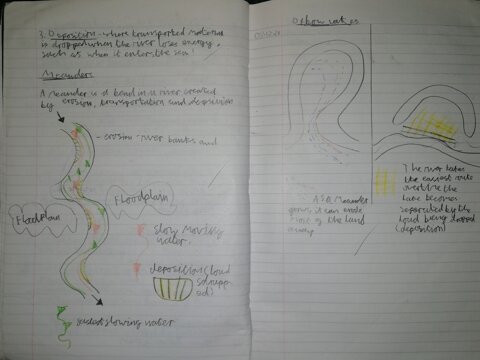 3. Deposition - where transported material
is dropped when the river loses energy,
such as when it enters the sea!
Meander
A meander is a bend in a river created
by erosion, transportation and deposition
- erosion - river banks and
Floodplain
Floodplain
slow moving
water
deposition (load
dropp
ed)
flowing water
Oxbow lakes
As a Meander
grows it can erode
more of the land
away
The river takes
the easiest route
over time the
lake becomes
separated by the
load being dropped
(deposition)